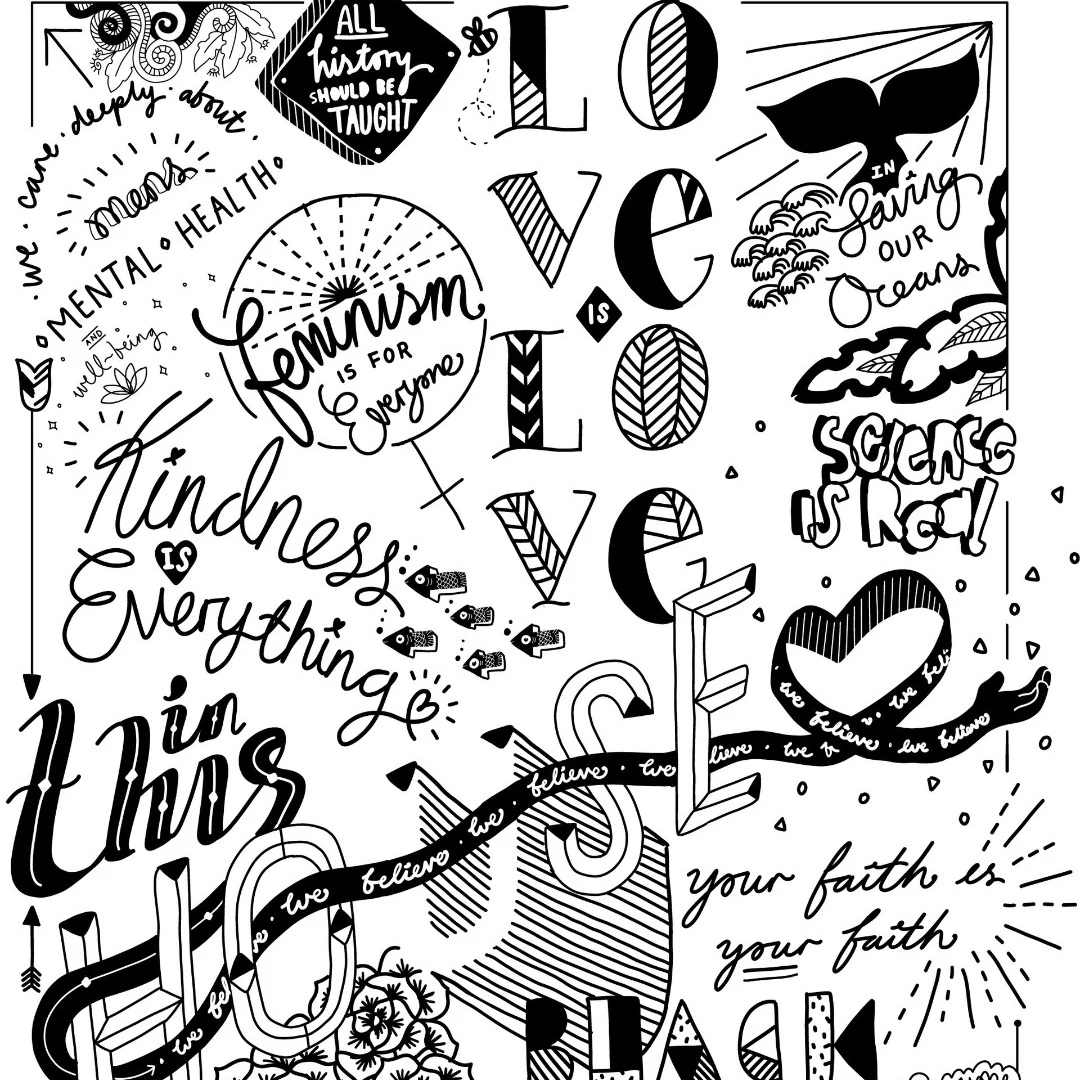 ALL
history
SHOULD BE
TAUGHT
we · care · deeply · about ·
mens
MENTAL HEALTH
AND
well-being
LO
Ve
IS
LO
Ve
IN
Saving
OUR
Oceans
feminism
IS FOR
Everyone
SCIENCE
IS Real!
Kindness
IS
Everything
in
this
HOUSE
we · believe · we · believe · we · believe · we believe · we believe
your faith is
your faith
BLACK